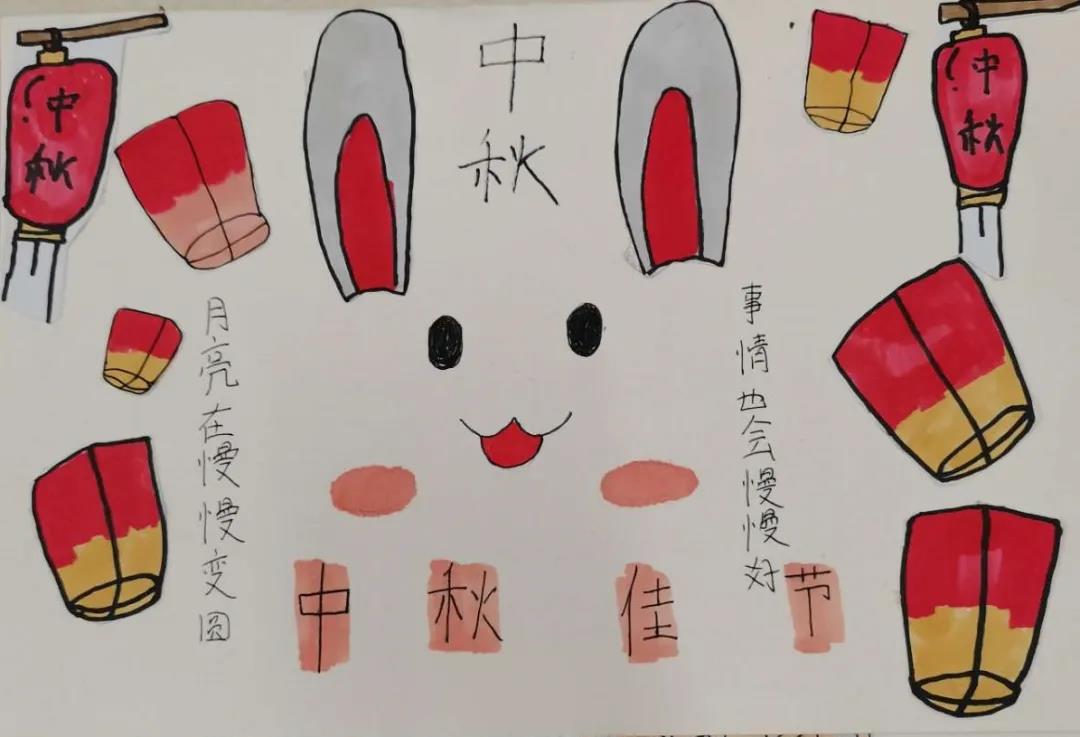 中秋
中秋
中秋
月亮在慢慢变圆
事情也会慢慢好
中秋佳节